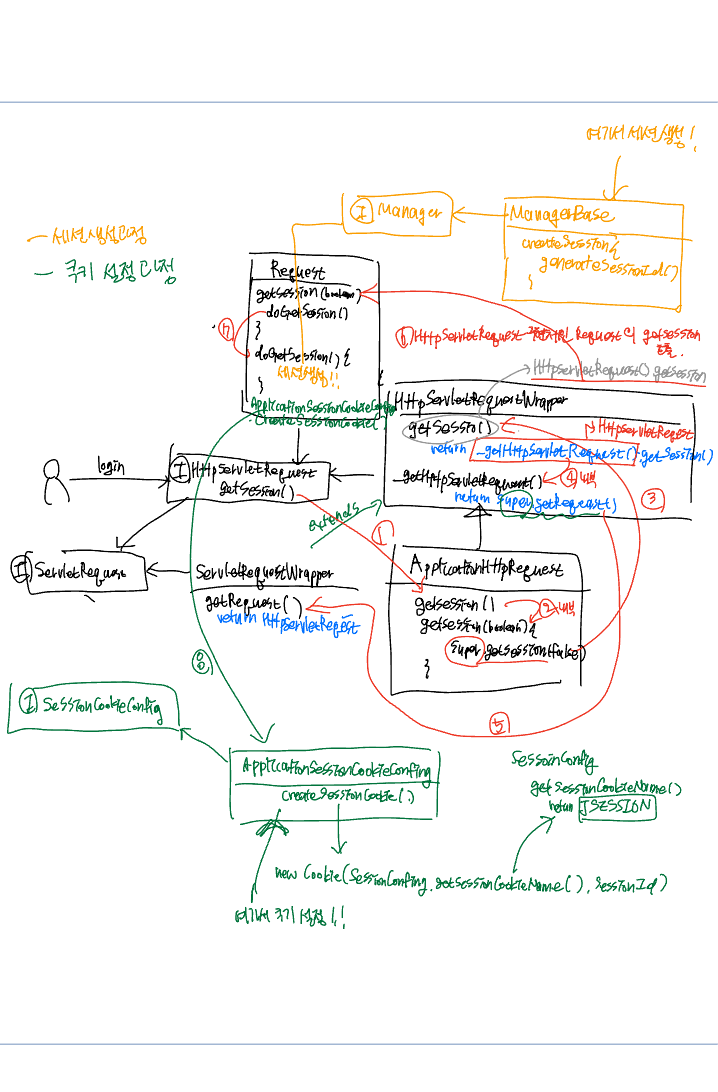 여기서 세션생성!
Ⓘ Manager
ManagerBase
createSession{
generateSessionId()
}
- 세션생성과정
- 쿠키 설정과정
Request
getSession(boolean)
doGetSession()
}
doGetSession() {
세션생성!!
}
ApplicationSessionCookieConfig
.CreateSessionCookie(
⑦
⑥ HttpServletRequest 구현체인 Request의 getSession
호출.
HttpServletRequest().getSession
HttpServletRequestWrapper
getSession()
HttpServletRequest
return _getHttpServletRequest().getSession()
_getHttpServletRequest() ④ 내부
return super.getRequest()
③
login
Ⓘ HttpServletRequest
getSession()
extends
①
Ⓘ ServletRequest
ServletRequestWrapper
getRequest()
return HttpServletRequest
ApplicationHttpRequest
getSession() ② 내부
getSession(boolean){
super.getSession(false)
}
⑧
⑤
Ⓘ SessionCookieConfig
ApplicationSessionCookieConfing
createSessionCookie(.)
SessoinConfig
getSessionCookieName()
return JSESSION
new Cookie(SessionConfing.getSessionCookieName(), sessionId)
여기서 쿠키 설정!!